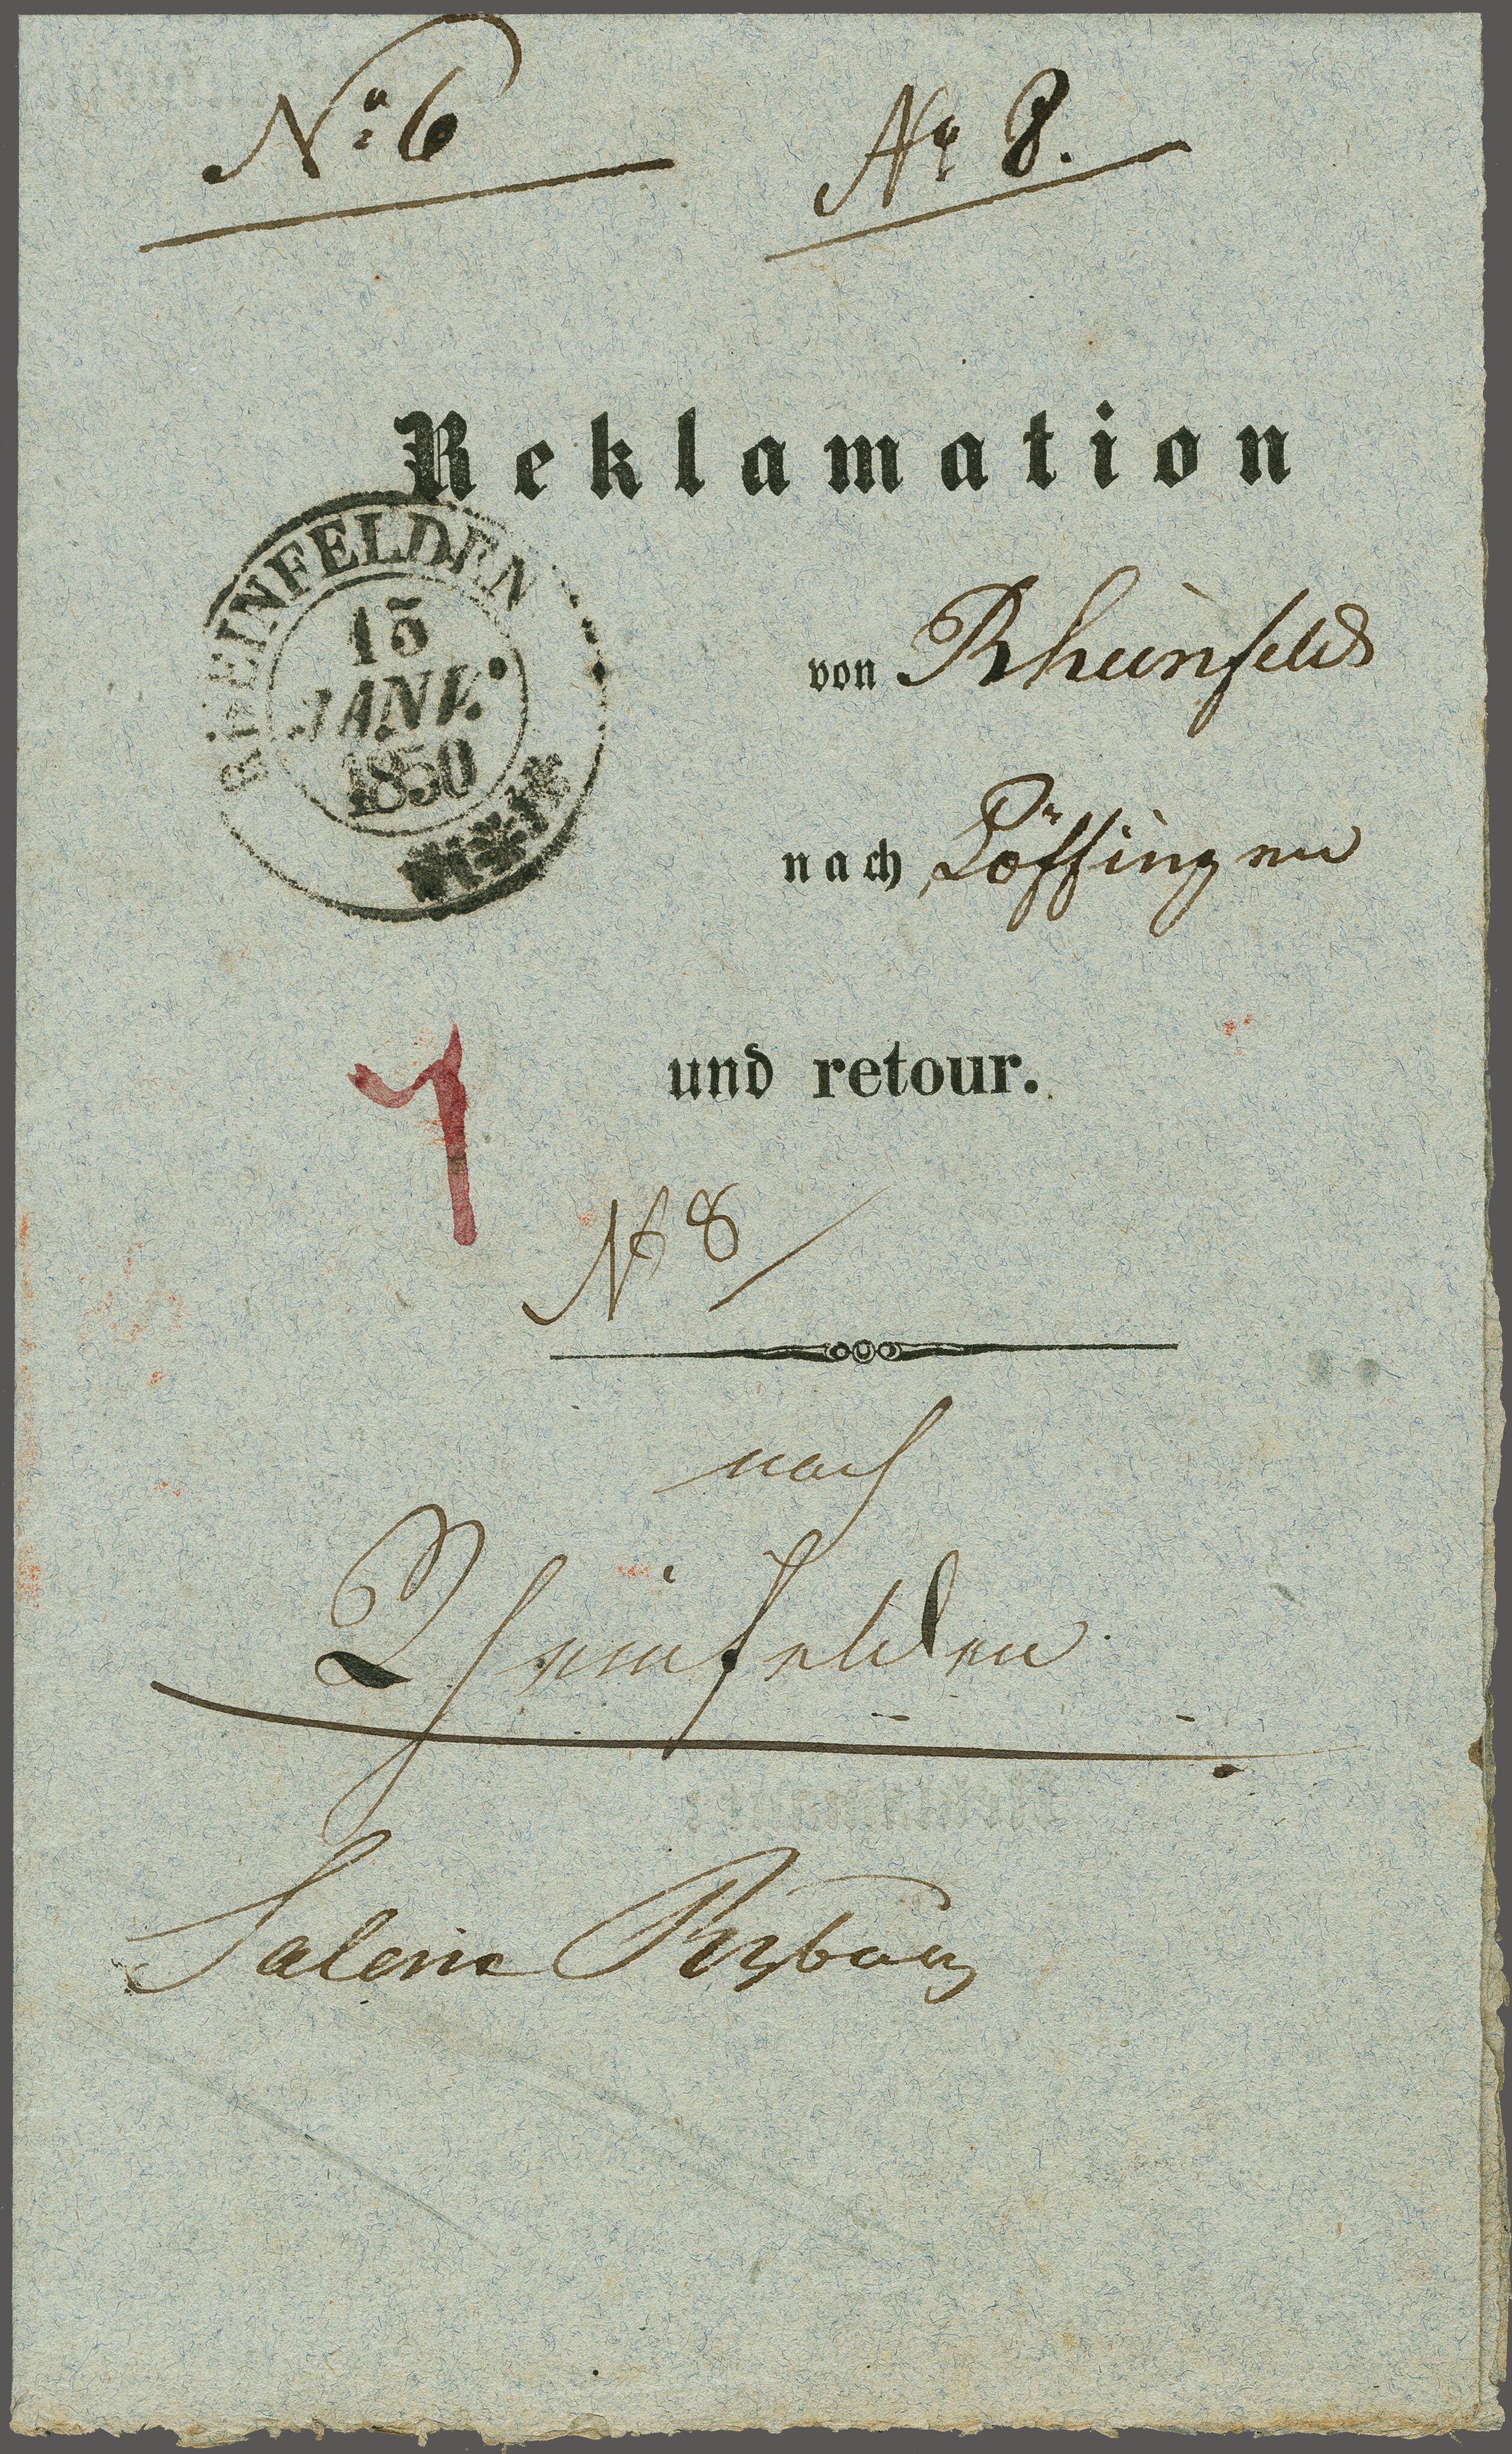 No 6
No 8.
Reklamation
RHEINFELDEN
15
JANV.
1850
von Rheinfeld
nach Löffingen
und retour.
N 8
nach
Rheinfelden
Saline Ryburg